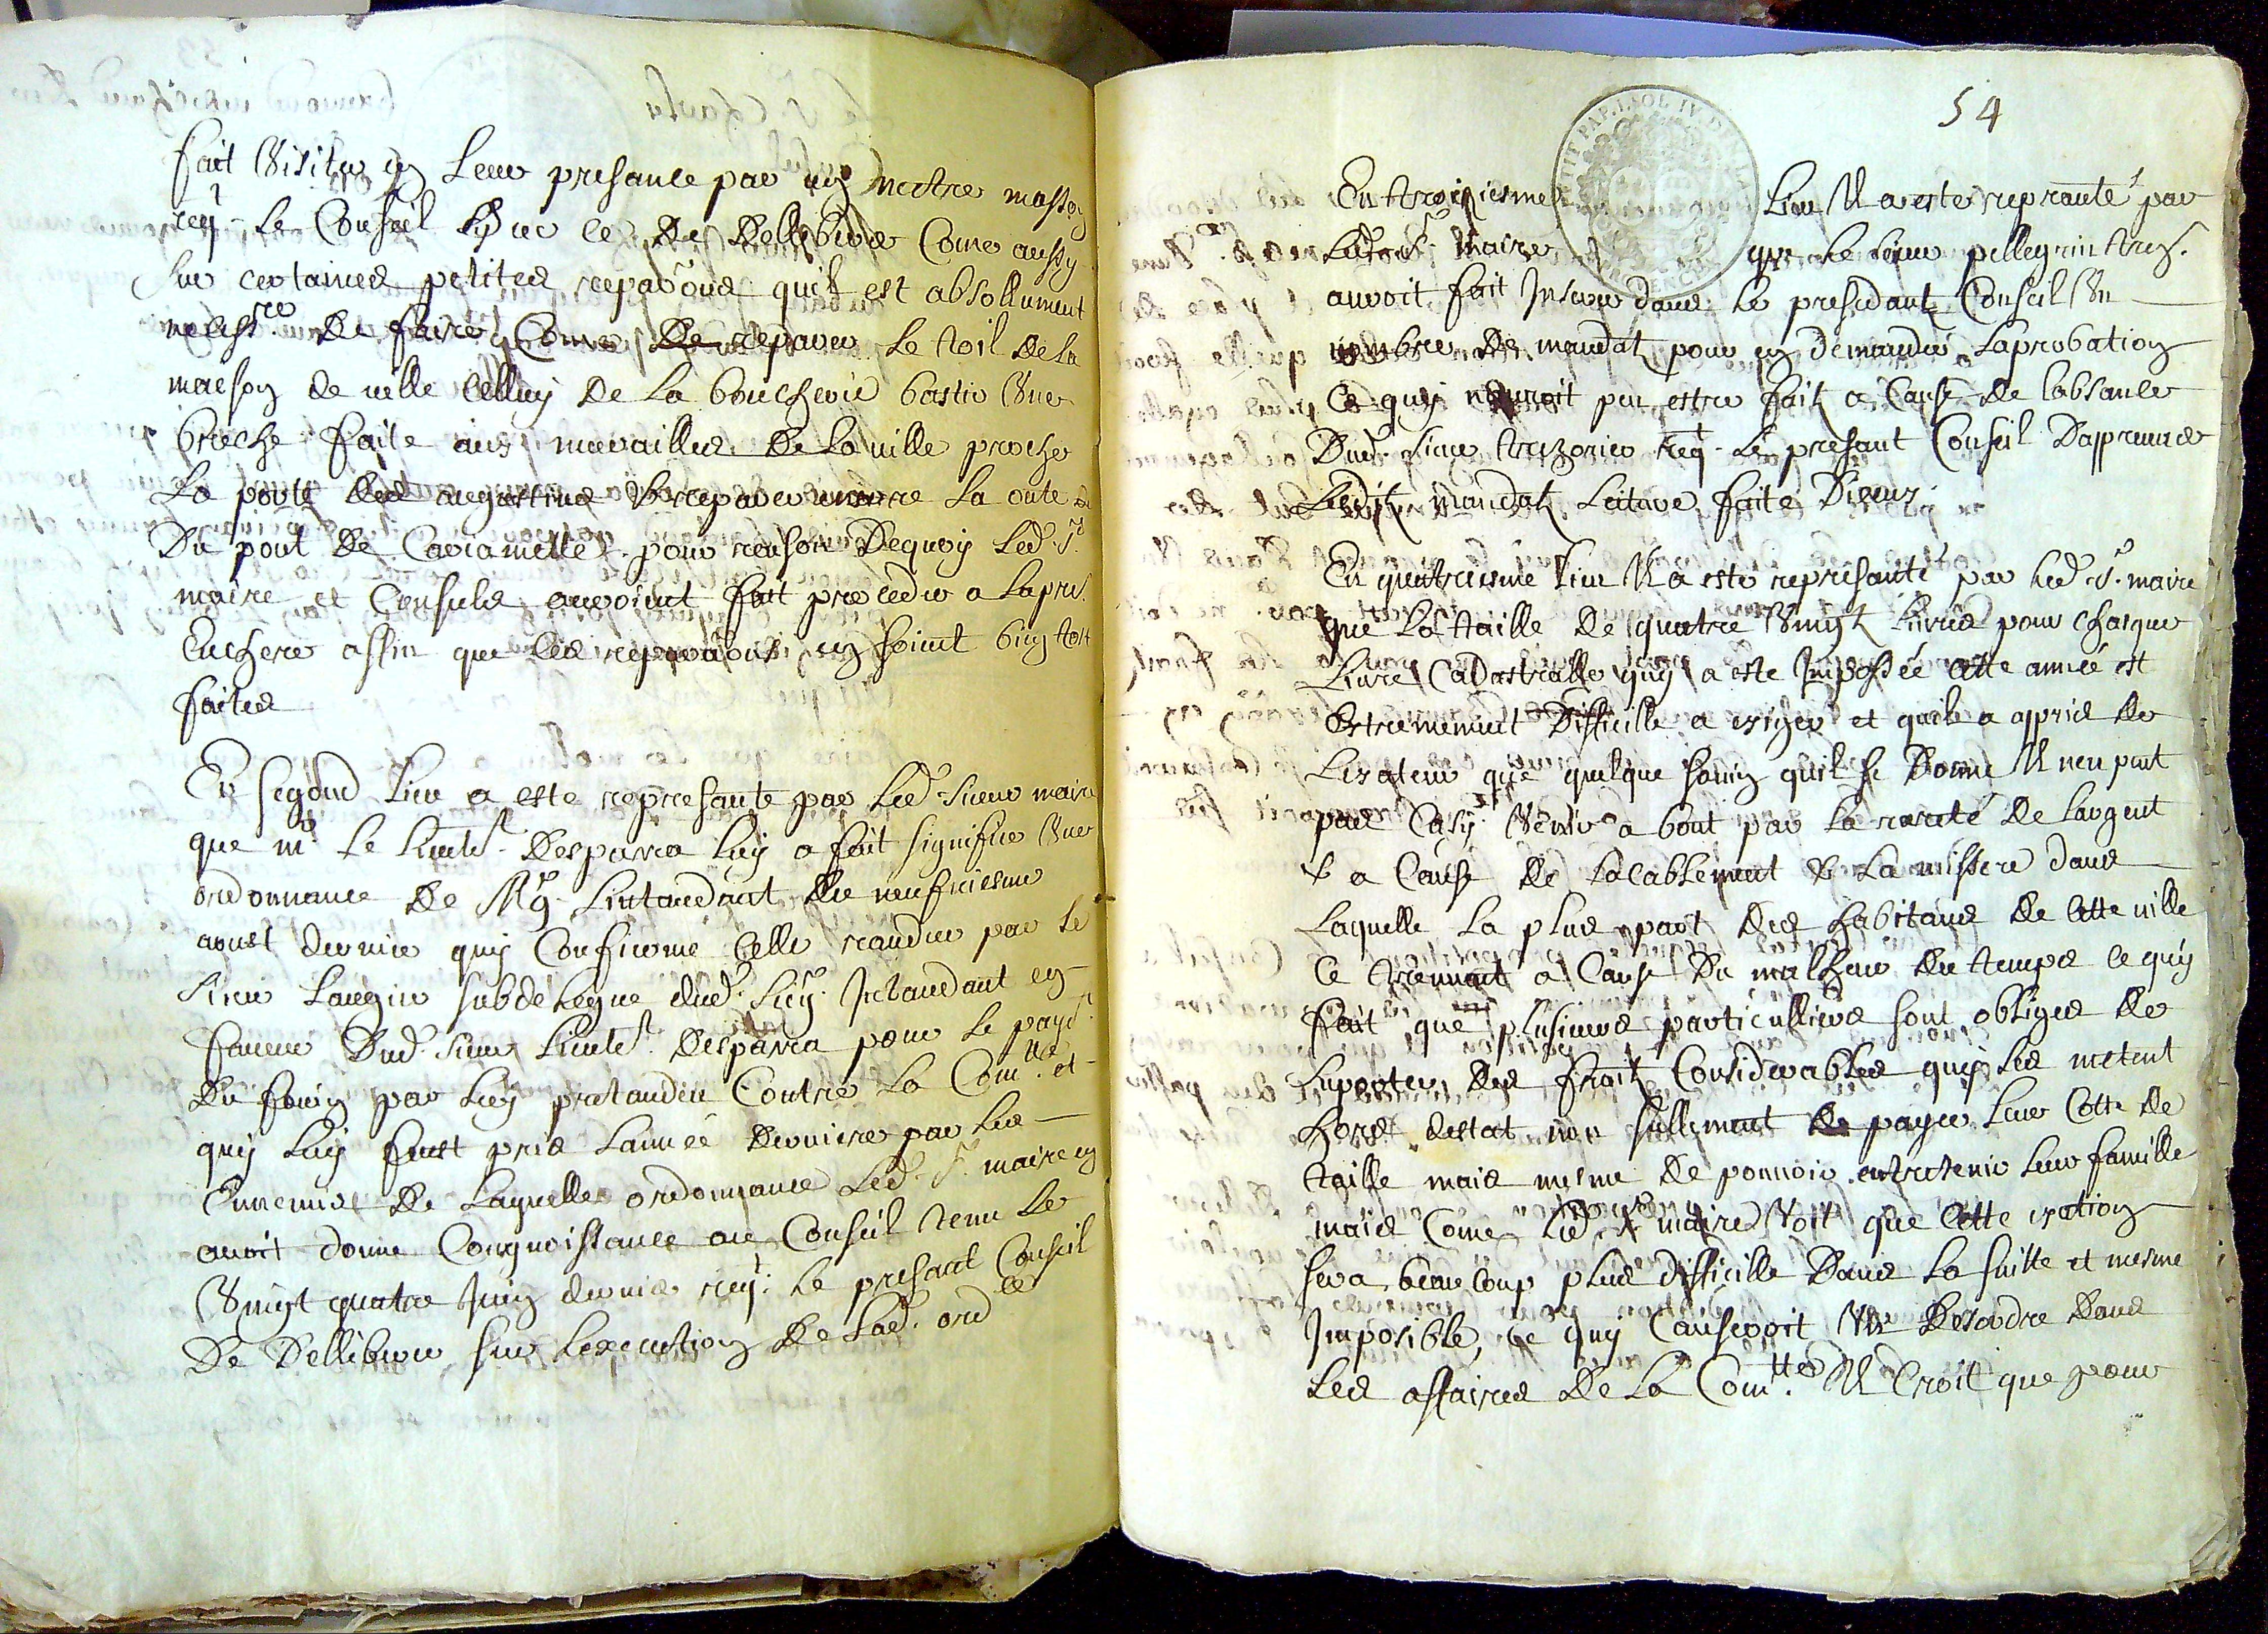 fait Visiter en Leur presance par un metre masson
req.t Le Conseil sur ce De Dellibérer Come aussy
sur certaines petites reparaõns quil est absollument
necess.re De faire Come De reparer Le toil De La
maison de ville Celluy De La boucherie bastir Une
breche faite aux murailles De La ville proche
La porte des augustins & reparer La
Du pont De Caramelle pour raison Dequoy Led. S.r
maire et Consuls auroint fait proceder a La pre.
Enchere affin que les reparaõns en soint bien tost
faites
En segond Lieu a este represante par Led. Sieur maire
que m.r Le Lieut.t Desparra Luy a fait signifier Une
ordonnance De Mg.r Lintandant du neufviesme
aoust dernier quy Confirme Celle randue par le
Sieur Laugier subdelegue dud. Sieg.r Intandant en
faveur Dud. Sieur Lieut.t Desparra pour Le paye.t
Du foing par Luy pretandeu Contre La Com.tte et
quy Luy feust pris Lannée Derniere par Les
Ennemis De Laquelle ordonnance Led. S.r maire en
avoit donne Congnoissance au Conseil tenu Le
Vingt quatre Juin dernier req.t Le presant Conseil
De Delliberer sur Lexecution De Lad. ord.ce
54
En troiziesme Lieu Il a este reprãnte par
Led. S.r Maire que Le Sieur pellegrin trez.r
auvoit fait Inserer dans Le presedant Conseil Un
nombre De mandat pour en demander Laprobation
Ce quy nauroit peu estre fait a Cause De labsance
Dud. Sieur trezorier req.t Le presant Conseil Dappreuver
Lesdits mandats Lecture faite Diceux
En quatriesme Lieu Il a este represanté par Led. S.r maire
que La taille De quatre Vingt Livres pour chasque
Livre Cadastralle quy a este Imposée Cette année est
Extremement Difficille a exiger et quil a appris De
Lexateur que quelque soing quil se Donne Il nen peut
pas Venir a bout par La rareté De Largent
& a Cause De Lacablement & La missere dans
Laquelle La plus part Des habitans De Cette ville
Ce trennent a Cause Du malheur Du temps Ce quy
fait que plusieurs particulliers sont obliges De
suporter Des frais Considerables quy Les metent
hors destat non sullement De payer Leur Cotte De
taille mais mesme De pouvoir entretenir Leur famille
mais Come Led. S.r maire Voit que Cette exation
sera beaucoup plus difficille Dans La suitte et mesme
Imposible, Ce quy Causeroit Un Desordre Dans
Les affaires De La Com.tte Il Croit que pour